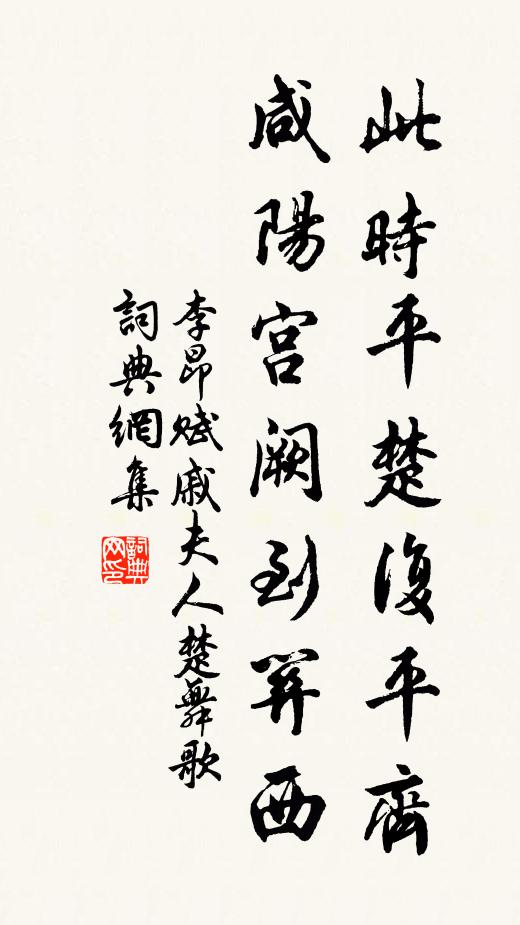 此時平楚復平齊
咸陽宮闕到關西
李昂賦戚夫人楚舞歌
詞典網集
詞典网印